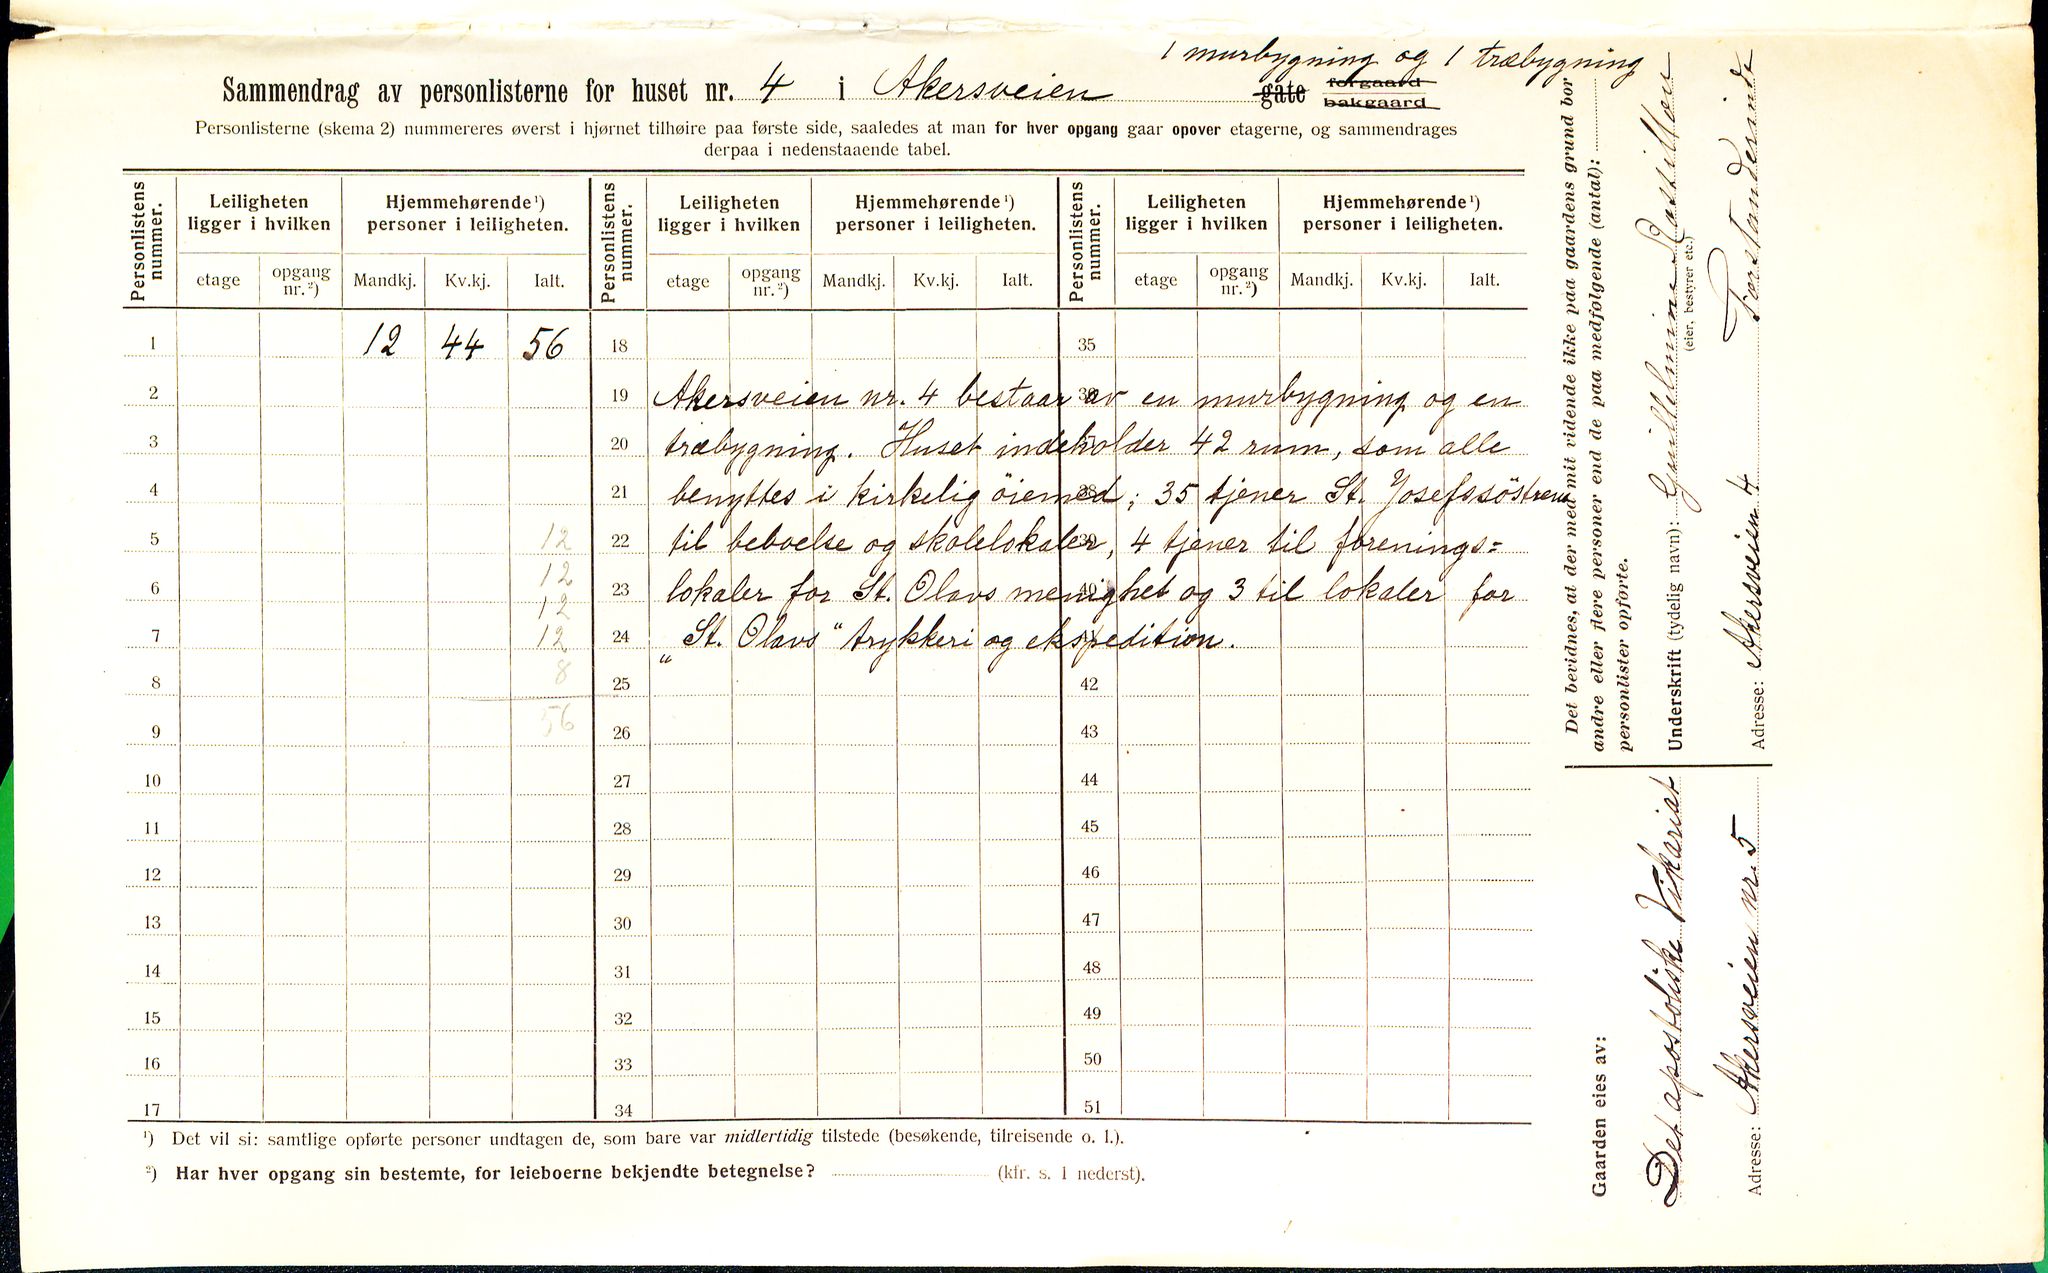 1 murbygning og 1 træbygning
Sammendrag av personlisterne for huset nr. 4 i Akersveien gate forgaard bakgaard
Personlisterne (skema 2) nummereres øverst i hjørnet tilhøire paa første side, saaledes at man for hver opgang gaar opover etagerne, og sammendrages
derpaa i nedenstaaende tabel.
Personlistens nummer. Leiligheten ligger i hvilken Hjemmehørende ¹) personer i leiligheten. Personlistens nummer. Leiligheten ligger i hvilken Hjemmehørende ¹) personer i leiligheten. Personlistens nummer. Leiligheten ligger i hvilken Hjemmehørende ¹) personer i leiligheten.
etage opgang nr. ²) Mandkj. Kv.kj. Ialt. etage opgang nr. ²) Mandkj. Kv.kj. Ialt. etage opgang nr. ²) Mandkj. Kv.kj. Ialt.
1 12 44 56 18 35
2 19 Akersveien nr. 4 bestaar av en murbygning og en
3 20 træbygning. Huset indeholder 42 rum, som alle
4 21 benyttes i kirkelig öiemed; 35 tjener St. Josefssöstrene
5 12 22 til beboelse og skolelokaler, 4 tjener til forenings=
6 12 23 lokaler for St. Olavs menighet og 3 til lokaler for
12
7 12 24 „St. Olavs“ trykkeri og ekspedition.
8 8 25 42
9 56 26 43
10 27 44
11 28 45
12 29 46
13 30 47
14 31 48
15 32 49
16 33 50
17 34 51
¹) Det vil si: samtlige opførte personer undtagen de, som bare var midlertidig tilstede (besøkende, tilreisende o. l.).
²) Har hver opgang sin bestemte, for leieboerne bekjendte betegnelse? (kfr. s. 1 nederst).
Det bevidnes, at der med mit vidende ikke paa gaardens grund bor
andre eller flere personer end de paa medfølgende (antal):
personlister opførte.
Underskrift (tydelig navn): Guillelmine
(eier, bestyrer etc.)
Forstanderinde
Adresse: Akersveien 4
Gaarden eies av:
Det apostoliske Vikariat
Adresse: Akersveien nr. 5